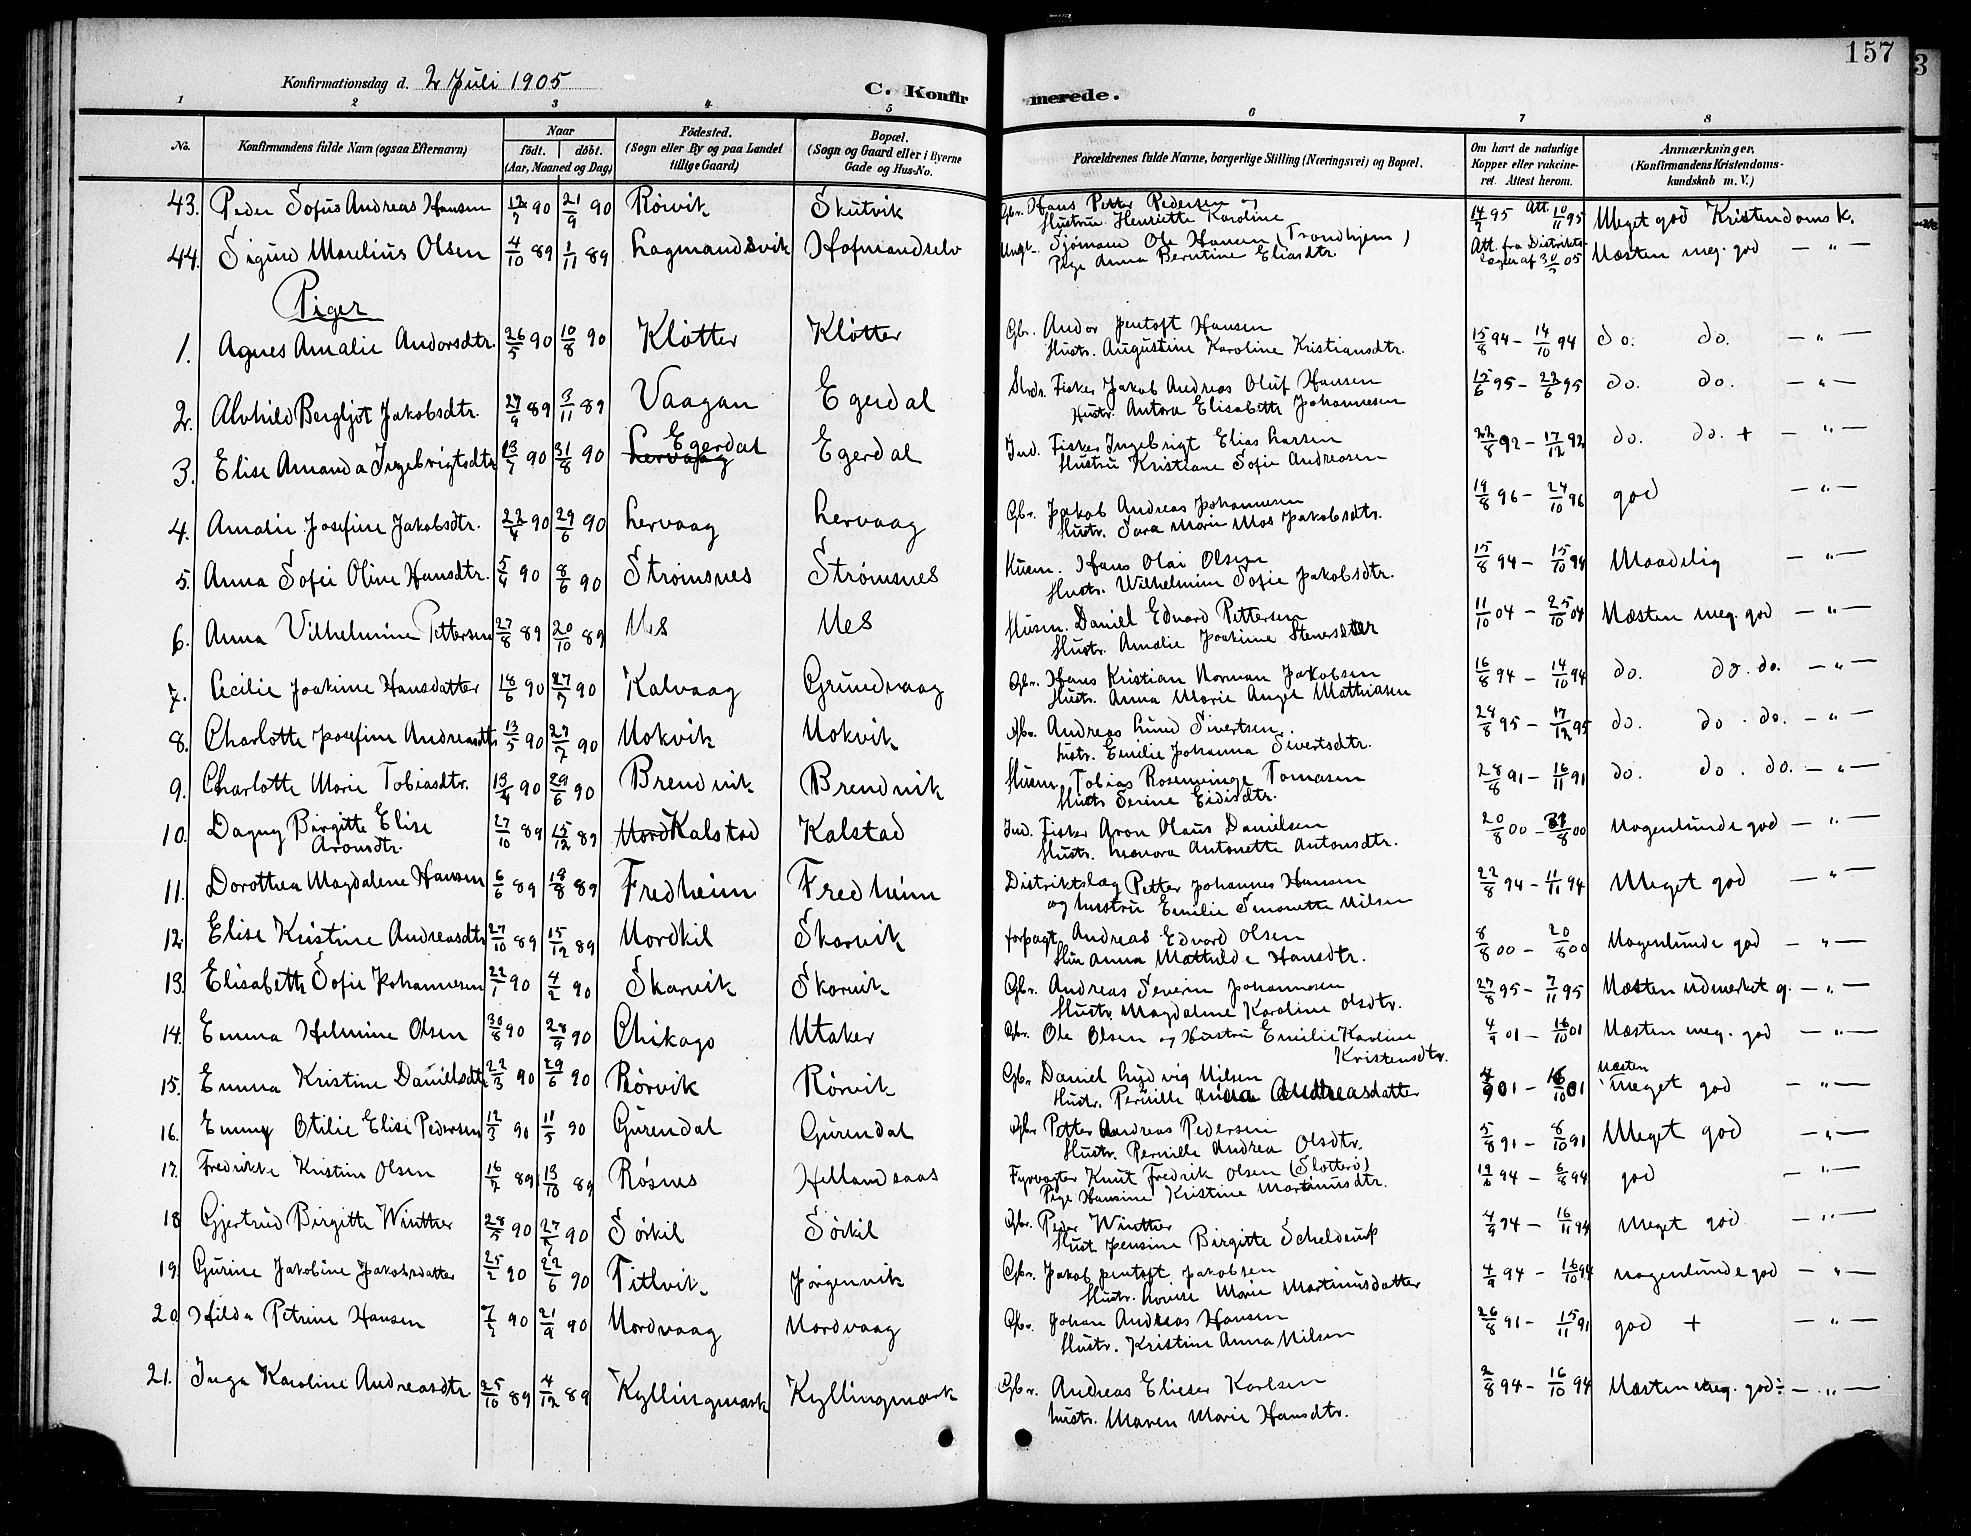 157
3
Konfirmationsdag d. 2 Juli 1905
C. Konfirmerede.
1 2 3 4 5 6 7 8
No. | Konfirmandens fulde Navn (ogsaa Efternavn) | Naar födt. döbt. (Aar, Maaned og Dag) | Födested. (Sogn eller By og paa Landet tillige Gaard) | Bopæl. (Sogn og Gaard eller i Byerne Gade og Hus-No. | Forældrenes fulde Navne, borgerlige Stilling (Næringsvei) og Bopæl. | Om havt de naturlige Kopper eller vakcineret. Attest herom. | Anmærkninger, (Konfirmandens Kristendomskundskab m. V.)
43. Peder Sofus Andreas Hansen 90 21/9 90 Rörvik Skutvik Gbr. Hans Petter Pedersen og Hustru Henriette Karoline 95 Att. 10/11 95 Meget god Kristendomsk.
44. Sigurd Marelius Olsen 4/10 89 1/11 89 Lagmandsvik Hofmandselv Ungk. Sjömand Ole Hansen (Trondhjem) Pige Anna Berntine Eliasdtr. Att. fra Distriktslægen af 05 Næsten meg. god — " —
Piger
1. Agnes Amalie Andorsdtr. 26/5 90 10/8 90 Klötter Klötter Gbr. Andor Jentoft Hansen Hustr. Augustine Karoline Kristiansdtr. 15/8 94 – 14/10 94 do. do. — " —
2. Alvhild Bergljot Jakobsdtr. 27/9 89 3/11 89 Vaagan Egerdal Strds. Fisker Jakob Andreas Oluf Hansen Hustr. Antora Elisabeth Johannesen 15/6 95 – 22/6 95 do. do. — " —
3. Elise Amanda Ingebrigtsdtr 13/7 90 31/8 90 Lervaag Egerdal Egerdal Ind. Fisker Ingebrigt Elias Larsen Hustru Kristiane Sofie Andreasen 22/8 92 – 17/12 92 do. do. + — " —
4. Amalie Josefine Jakobsdtr. 22/4 90 29/6 90 Lervaag Lervaag Gbr. Jakob Andreas Johannesen Hustr. Sara Marie Mos Jakobsdtr. 19/8 96 – 24/10 96 god — " —
5. Anna Sofie Oline Hansdtr. 5/4 90 8/6 90 Strömsnes Strömsnes Husm. Hans Olai Olsen Hustr. Wilhelmine Sofie Jakobsdtr. 15/8 94 – 15/10 94 Maadelig — " —
6. Anna Vilhelmine Pettersen 27/8 89 20/10 89 Nes Nes Husm. Daniel Edvard Pettersen Hustr. Amalie Joakime Stenersdtter 11/10 04 – 25/10 04 Næsten meg. god — " —
7. Cecilie Joakime Hansdatter 18/6 90 27/7 90 Kalvaag Grundvaag Gbr. Hans Kristian Norman Jakobsen Hustr. Anna Marie Angel Mathiasen 16/8 94 – 14/10 94 do. do. do. — " —
8. Charlotte Josefine Andreasdtr 13/5 90 27/7 90 Nokvik Nokvik Gbr. Andreas Lund Sivertsen Hustr. Emilie Johanna Sivertsdtr. 28/8 95 – 17/12 95 do. do. do. — " —
9. Charlotte Marie Tobiasdtr. 13/4 90 29/6 90 Brendvik Brendvik Husm. Tobias Rosenvinge Tomasen Hustr Serine Eidisdtr. 28/8 91 – 16/11 91 do. do. do. — " —
10. Dagny Birgitte Elise Aronsdtr. 27/10 89 15/12 89 Nord Kalstad Kalstad Ind. Fisker Aron Olaus Danielsen Hustr. Leonora Antonette Antonsdtr. 20/8 00 – /8 00 Nogenlunde god — " —
11. Dorothea Magdalene Hansen 6/6 89 18/8 89 Fredheim Fredheim Distriktslæg Petter Johannes Hansen og Hustru Emilie Simonette Nilsen 22/8 94 – 11/11 94 Meget god — " —
12. Elise Kristine Andreasdtr 27/10 89 15/12 89 Nordkil Skarvik forpagt. Andreas Edvard Olsen Hu Anna Mathilde Hansdtr. 8/8 00 – 20/8 00 Nogenlunde god — " —
13. Elisabeth Sofie Johannesen 22/1 90 4/2 90 Skarvik Skarvik Gbr. Andreas Severin Johannesen Hustr. Magdalene Karoline Olsdtr. 27/8 95 – 7/11 95 Næsten udmerket g. — " —
14. Emma Helmine Olsen 30/8 90 28/9 90 Chikago Utaker Gbr. Ole Olsen og Hustru Emilie Karoline Kristensdtr. 4/9 01 – 16/10 01 Næsten meg. god — " —
15. Emma Kristine Danielsdtr 22/3 90 29/6 90 Rörvik Rörvik Gbr. Daniel Lydvig Nilsen Hustr. Pernille Anna Andreasdatter 4/9 01 – 16/10 01 Næsten meget god — " —
16. Emmy Otilie Elise Pedersen 12/3 90 11/5 90 Gurendal Gurendal Gbr Petter Andreas Pedersen Hustr. Pernille Andrea Olsdtr. 5/8 91 – 8/10 91 Meget god — " —
17. Fredrikke Kristine Olsen 16/7 89 13/10 89 Rösnes Hellandsaas Fyrvogter Knut Fredrik Olsen (Slotterö) Pige Hansine Kristine Martinusdtr. 94 – 6/8 94 god — " —
18 Gjertrud Birgitte Winther 28/5 90 27/7 90 Sörkil Sörkil Gbr. Peder Winther Hust Jensine Birgitte Schelderup 4/9 94 – 16/11 94 Meget god — " —
19. Gurine Jakobine Jakobsdatter 25/2 90 22/6 90 Titlvik Jörgenvik Gbr. Jakob Jentoft Jakobsen Hustr. Lovise Marie Martinusdatter 4/9 94 – 16/10 94 Nogenlunde god — " —
20 Hilda Petrine Hansen 90 21/9 90 Nordvaag Nordvaag Gbr. Johan Andreas Hansen Hustr. Kristine Anna Nilsen 26/8 91 – 15/11 91 god + — " —
21. Inga Karoline Andreasdtr 25/10 89 4/12 89 Kyllingmark Kyllingmark Gbr. Andreas Elieser Karlsen Hustr. Maren Marie Hansdtr. 2/8 94 – 16/10 94 Næsten meg. god ÷ — " —